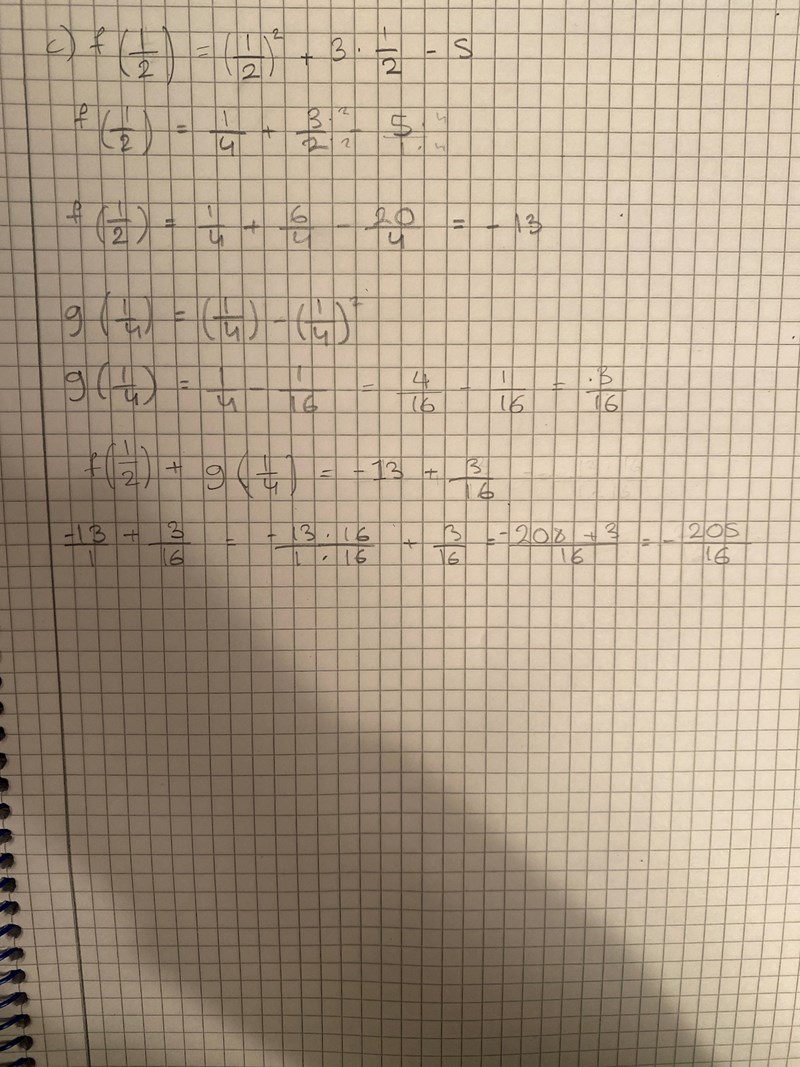 c) f(1/2) = (1/2)² + 3 · 1/2 - 5
f(1/2) = 1/4 + 3·2/2·2 - 5·4/1·4
f(1/2) = 1/4 + 6/4 - 20/4 = - 13
g(1/4) = (1/4) - (1/4)²
g(1/4) = 1/4 - 1/16 = 4/16 - 1/16 = 3/16
f(1/2) + g(1/4) = -13 + 3/16
-13/1 + 3/16 = - 13·16/1·16 + 3/16 = -208 + 3/16 = - 205/16